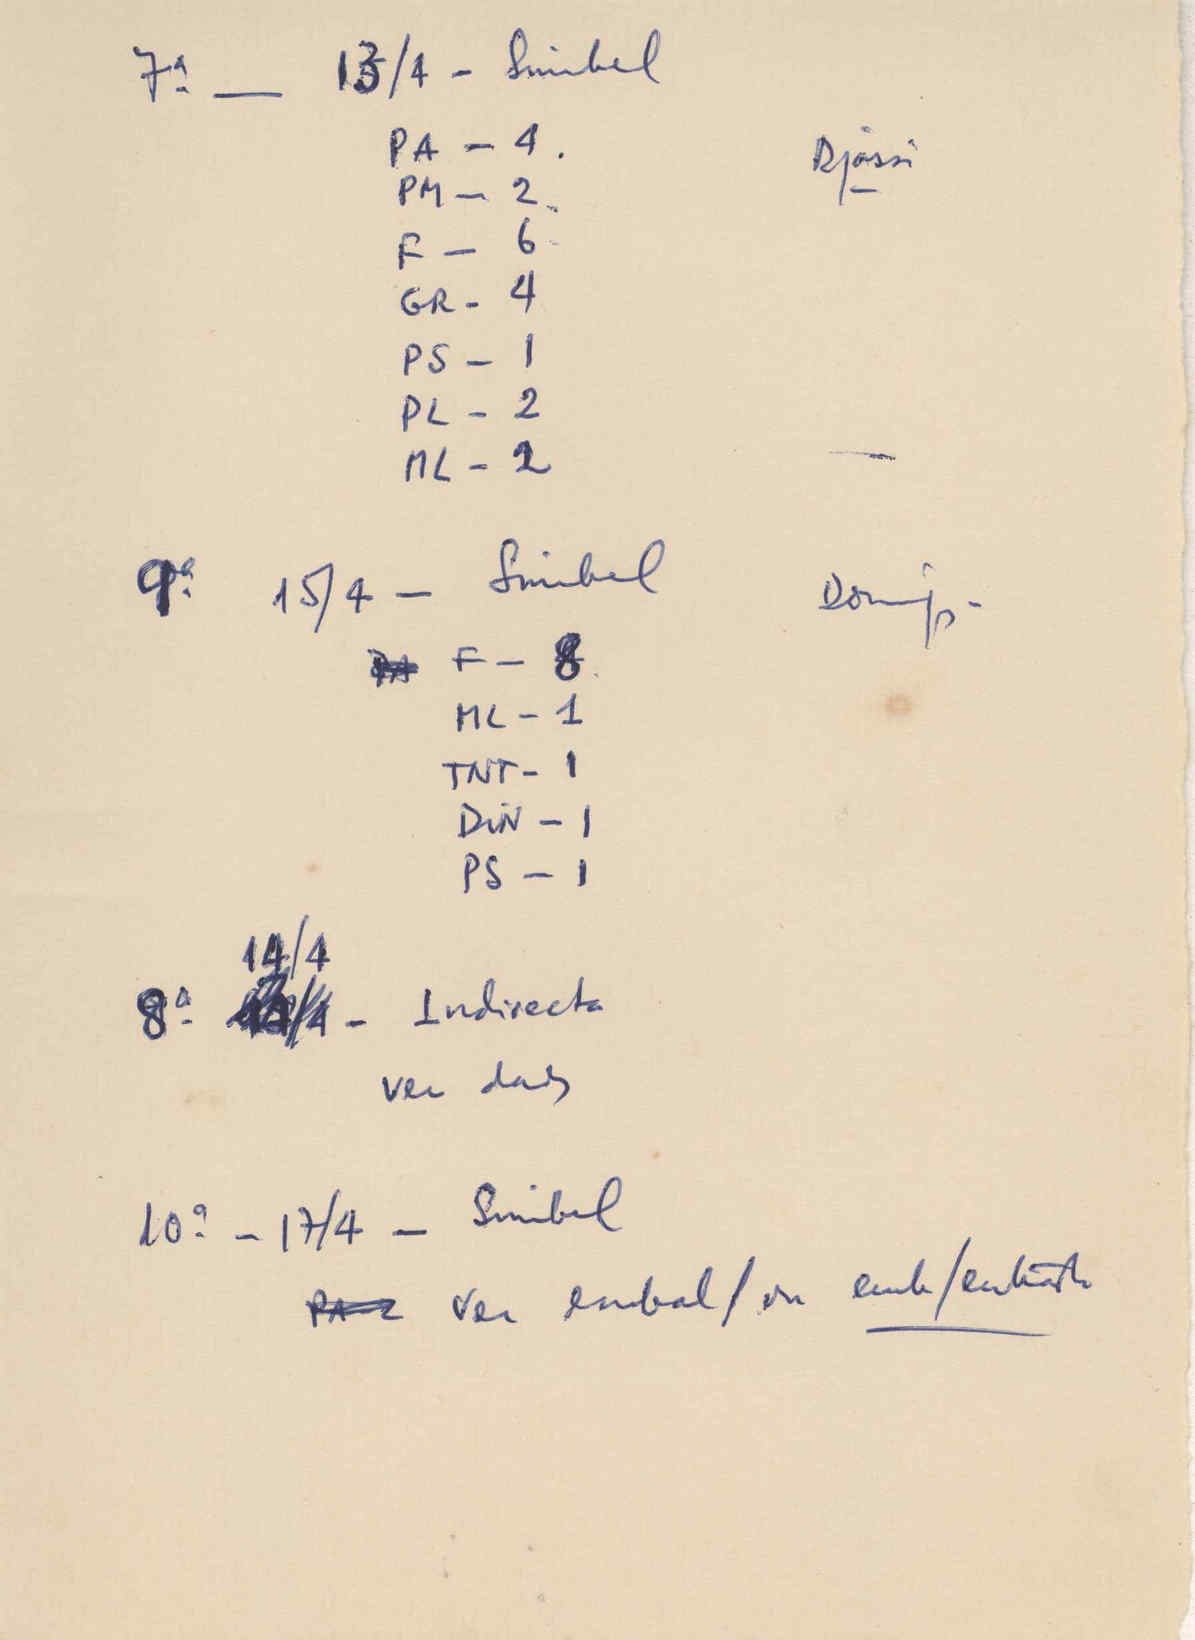 7ª — 13/4 - Simbel
PA - 4. Djassi
PM - 2
F - 6
GR - 4
PS - 1
PL - 2
ML - 2
9ª 15/4 - Simbel
F - 8
ML - 1
TNT - 1
DIN - 1
PS - 1
14/4
8ª - Indirecta
ver
10ª - 17/4 - Simbel
ver